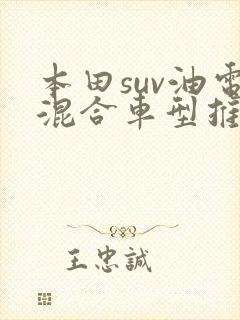 本田suv油電
混合車型推
王忠誠